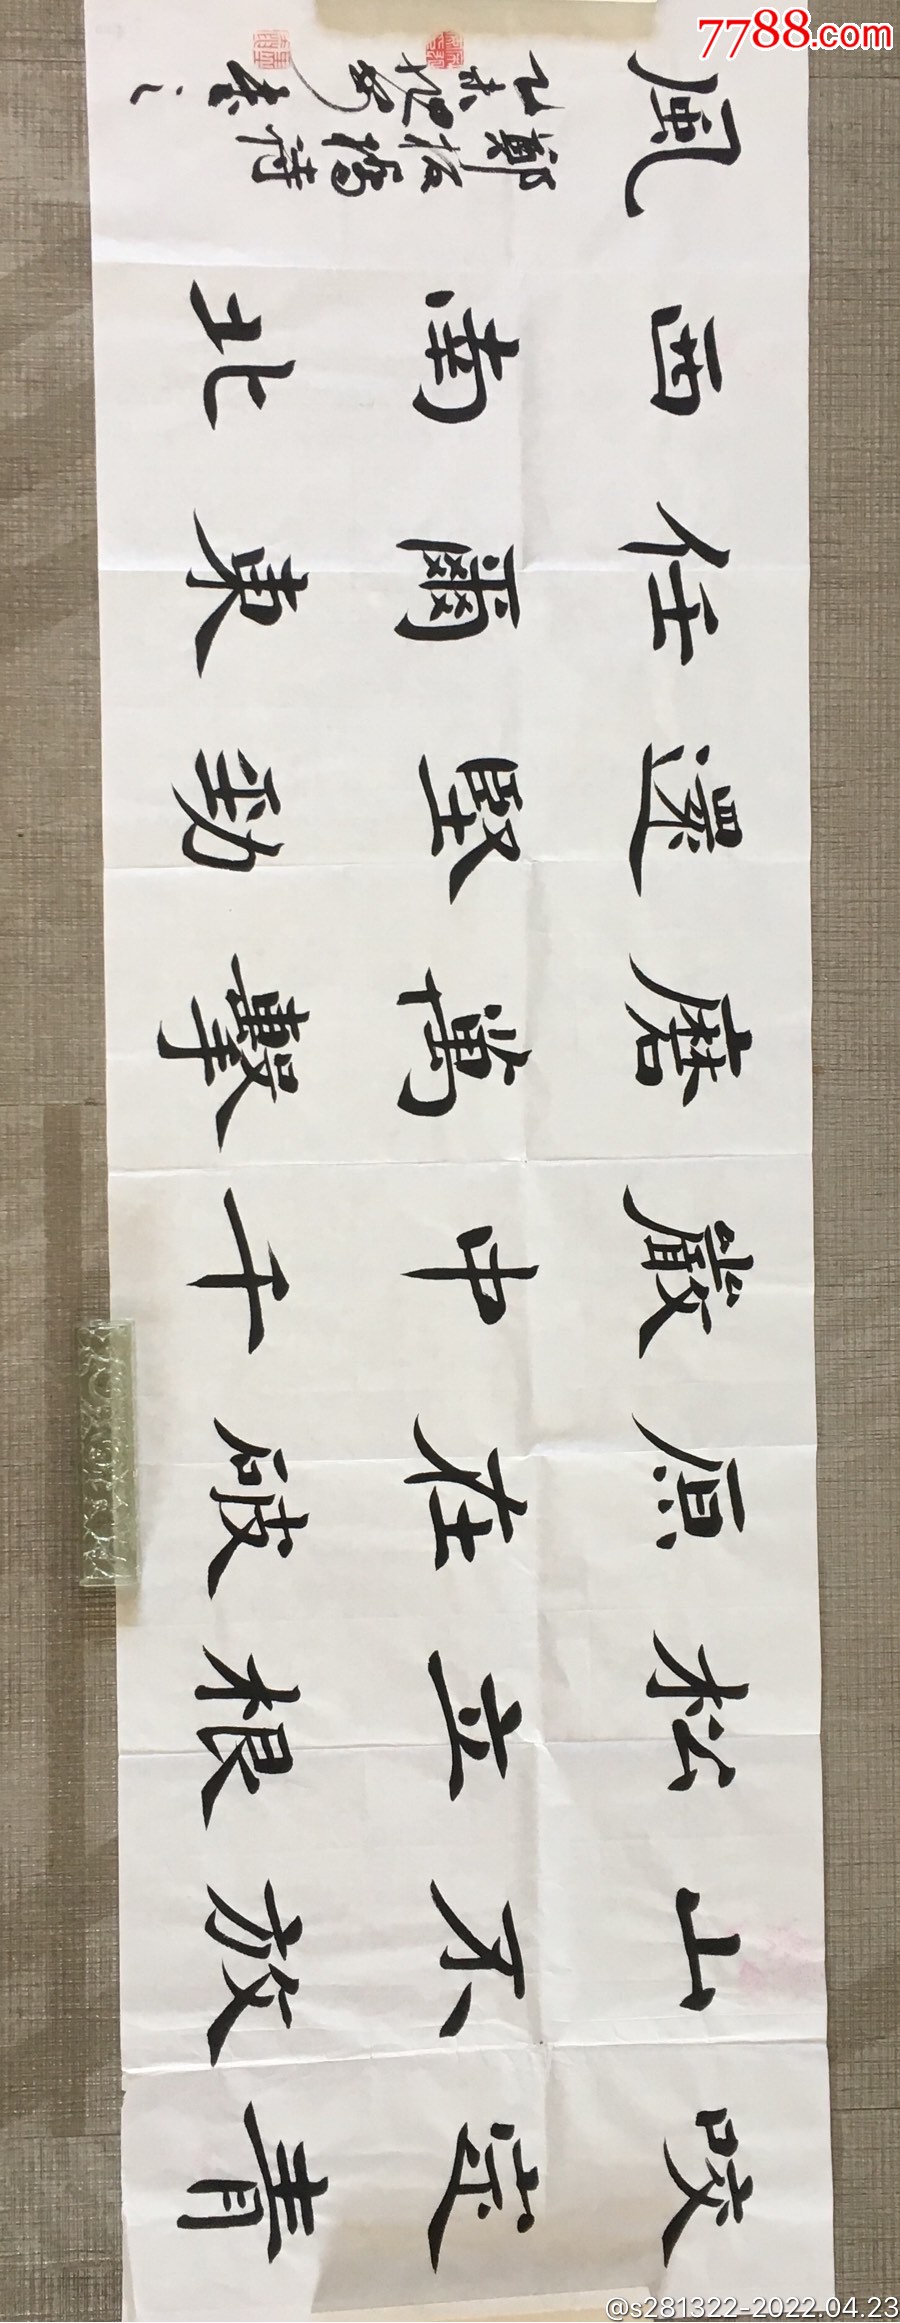 咬定青
山不放
松立根
原在破
嚴中千
磨萬擊
還堅勁
任爾東
西南北
風
鄭板橋詩
乙未
7788.com
@s281322-2022.04.23